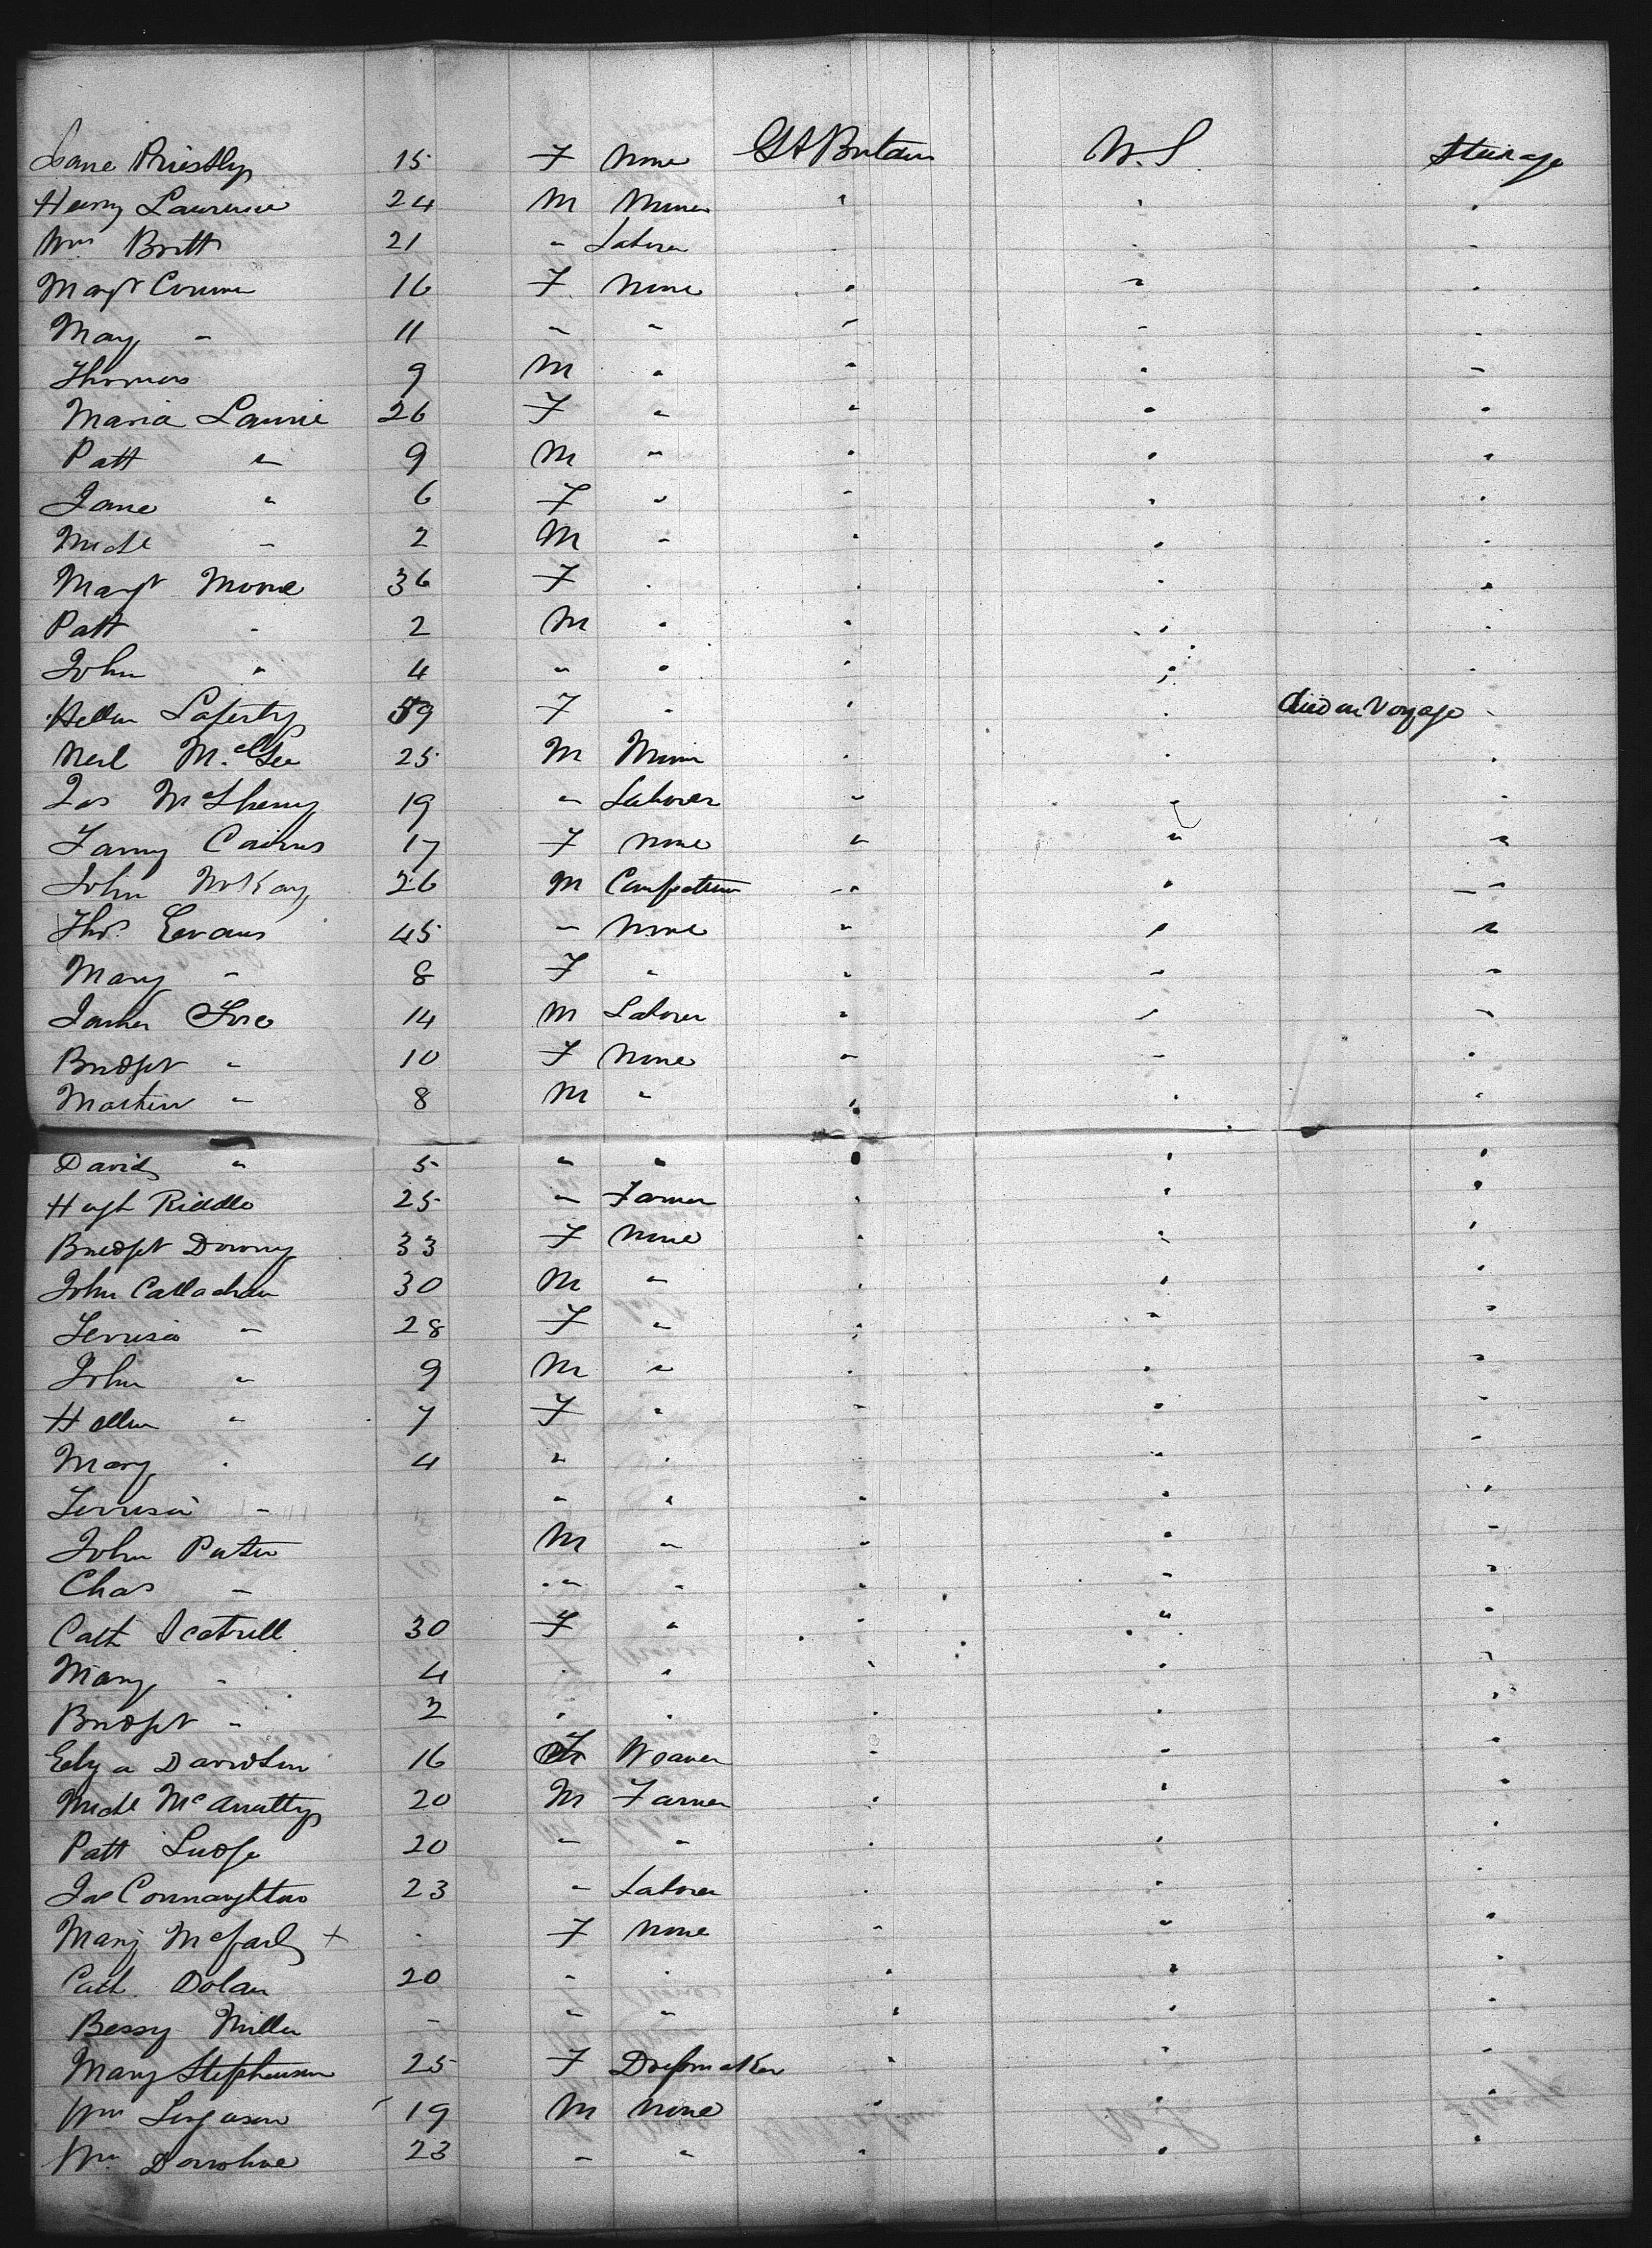 Jane Priestly 15 F None Gt Britain U.S Steerage
Henry Lawrence 24 M Miner " " "
Wm Britt 21 " Laborer " " "
Margt 16 F None " " "
Mary " 11 " " " " "
Thomas 9 M " " " "
Maria Laurie 26 F " " " "
Patt " 9 M " " " "
Jane " 6 F " " " "
Michl " 2 M " " " "
Margt 36 F " " " "
Patt " 2 M " " " "
John " 4 " " " " "
Hellen Laferty 59 F " " " died on Voyage "
Neil McGee 25 M Miner " " "
Jas McSherry 19 " Laborer " " "
Fanny Cairns 17 F None " " "
John McKay 26 M " " "
Thos Evans 45 " None " " "
Mary " 8 F " " " "
James 14 M Laborer " " "
Bridget " 10 F None " " "
Martin " 8 M " " " "
David " 5 " " " " "
Hugh Riddle 25 " Farmer " " "
Bridget Downy 33 F None " " "
John Callachan 30 M " " " "
" 28 F " " " "
John " 9 M " " " "
Hellen " 7 F " " " "
Mary " 4 " " " "
" " " " " "
John M " " " "
Chas " " " " " "
Cath 30 F " " " "
Mary " 4 " " " " "
Bridget " 2 " " " " "
Eliza Davidson 16 F Weaver " " "
Michl 20 M Farmer " " "
Patt Judge 20 " " " " "
Jas Connaughton 23 " Laborer " " "
Mary + " F None " " "
Cath. Dolan 20 " " " " "
Bessy Miller – " " " " "
Mary Stephenson 25 F Dressmaker " " "
Wm Ferguson 19 M None " " "
Wm Donohue 23 " " " " "